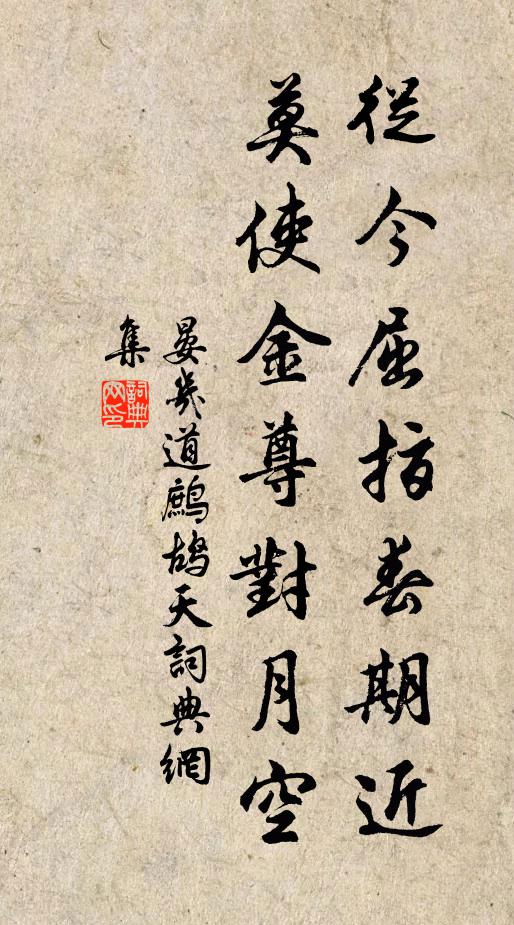 從今屈指春期近
莫使金尊對月空
晏幾道鷓鴣天詞典網
集
詞典網印